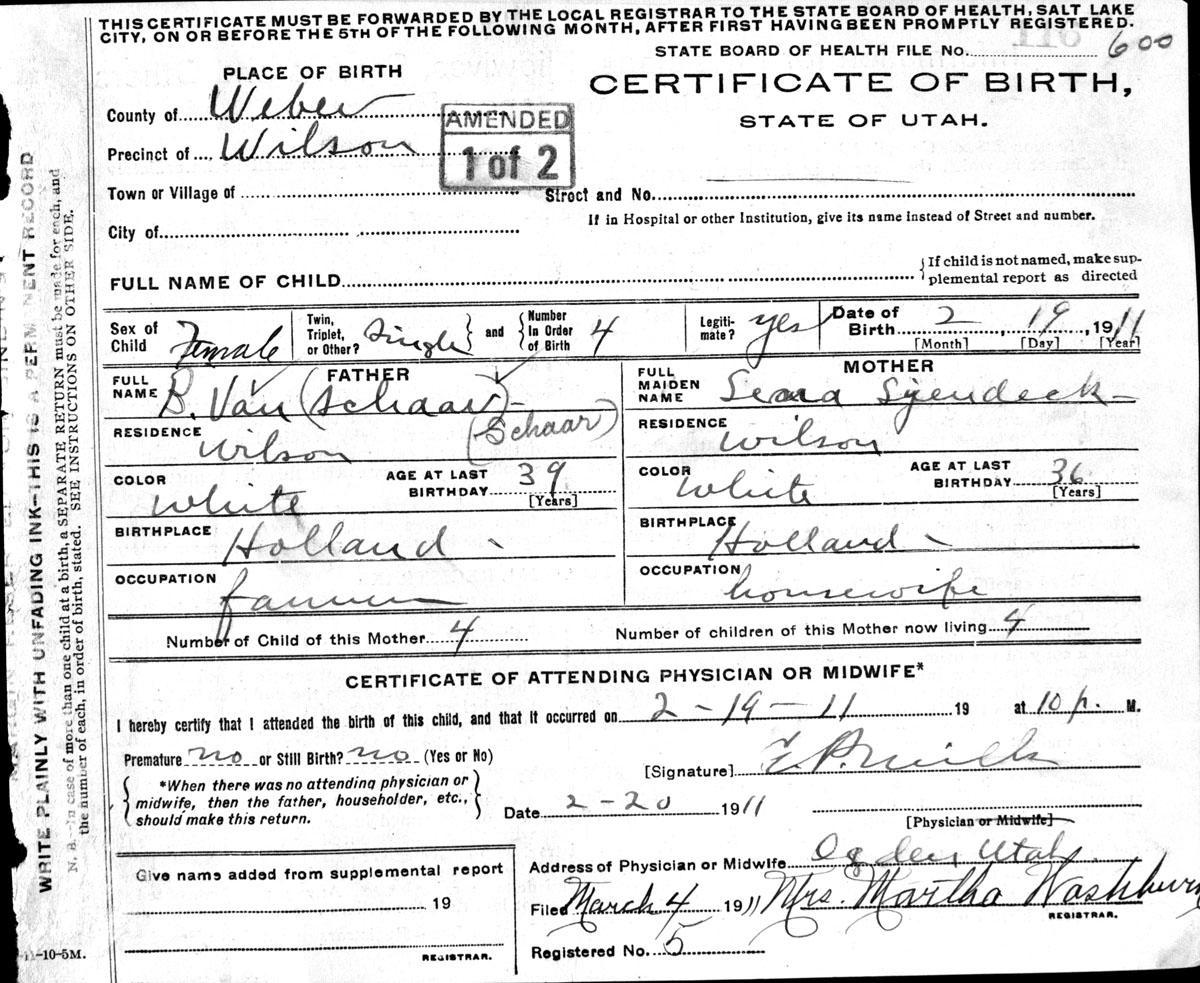 THIS CERTIFICATE MUST BE FORWARDED BY THE LOCAL REGISTRAR TO THE STATE BOARD OF HEALTH, SALT LAKE
CITY, ON OR BEFORE THE 5TH OF THE FOLLOWING MONTH, AFTER FIRST HAVING BEEN PROMPTLY REGISTERED.
STATE BOARD OF HEALTH FILE No. 600
PLACE OF BIRTH
CERTIFICATE OF BIRTH,
STATE OF UTAH.
County of Weber
AMENDED
1 of 2
Precinct of Wilson
Town or Village of
Street and No.
If in Hospital or other Institution, give its name instead of Street and number.
City of
FULL NAME OF CHILD
If child is not named, make sup-
plemental report as directed
Sex of Child Female
Twin, Triplet, or Other? Single and Number In Order of Birth 4
Legiti- mate? yes
Date of Birth 2, 19, 1911
[Month] [Day] [Year]
FATHER
FULL NAME B. Van (Schaar)
(Schaar)
RESIDENCE Wilson
COLOR White
AGE AT LAST BIRTHDAY 39
[Years]
BIRTHPLACE Holland
OCCUPATION farmer
MOTHER
FULL MAIDEN NAME
RESIDENCE Wilson
COLOR White
AGE AT LAST BIRTHDAY 36
[Years]
BIRTHPLACE Holland
OCCUPATION housewife
Number of Child of this Mother 4
Number of children of this Mother now living 4
CERTIFICATE OF ATTENDING PHYSICIAN OR MIDWIFE*
I hereby certify that I attended the birth of this child, and that it occurred on 2-19-11 19 at 10 p. M.
Premature no or Still Birth? no (Yes or No)
[Signature]
*When there was no attending physician or
midwife, then the father, householder, etc.,
should make this return.
Date 2-20 1911
[Physician or Midwife]
Address of Physician or Midwife Ogden Utah
Give name added from supplemental report
19
REGISTRAR.
Filed March 4 1911 Mrs. Martha Washburn
REGISTRAR.
Registered No. 5
-10-5M.
WRITE PLAINLY WITH UNFADING INK-THIS IS A PERMANENT RECORD
N. B.—In case of more than one child at a birth, a SEPARATE RETURN must be made for each, and
the number of each, in order of birth, stated. SEE INSTRUCTIONS ON OTHER SIDE.